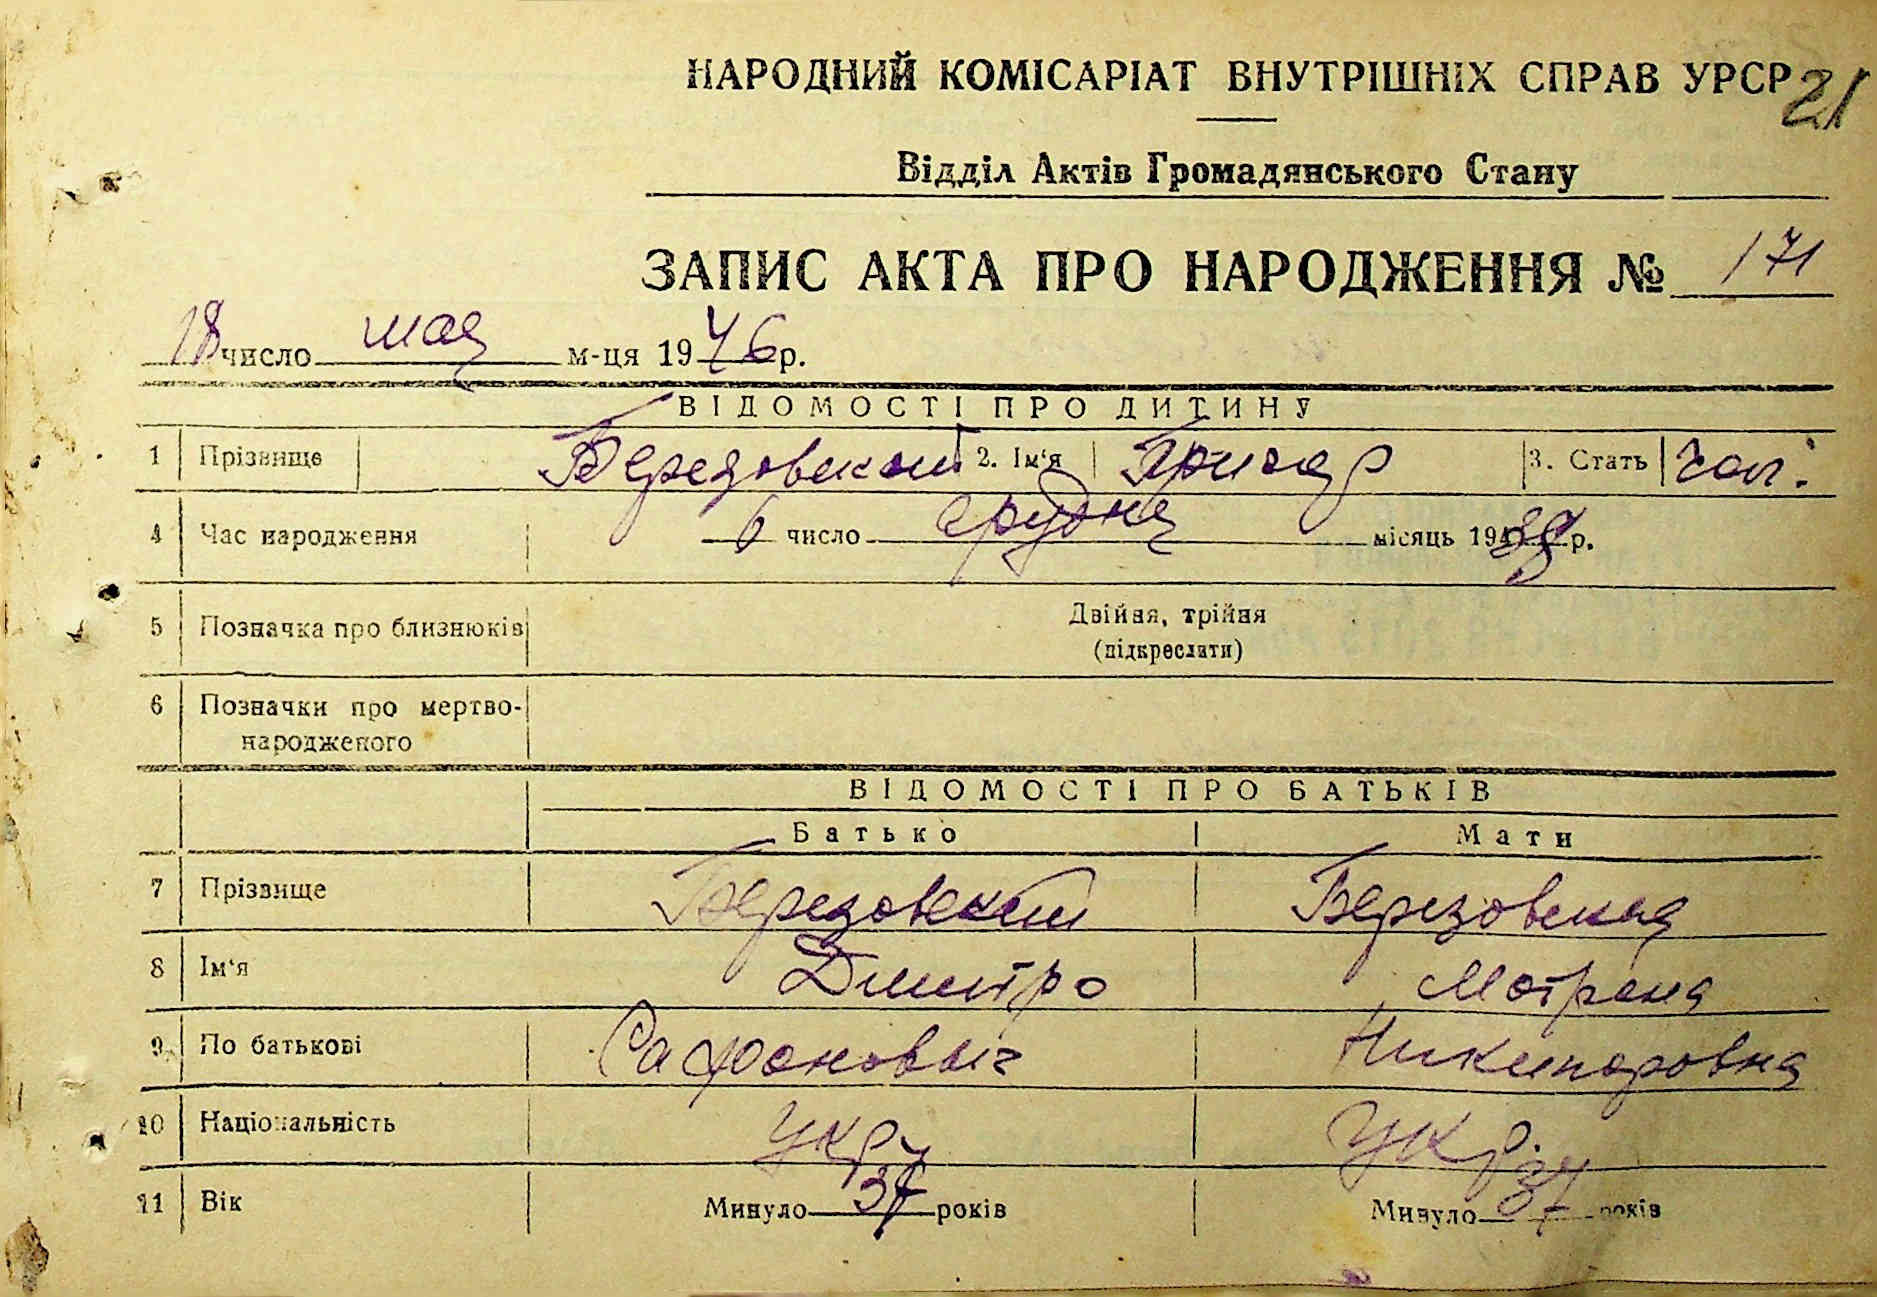 НАРОДНИЙ КОМІСАРІАТ ВНУТРІШНІХ СПРАВ УРСР 21
Відділ Актів Громадянського Стану
ЗАПИС АКТА ПРО НАРОДЖЕННЯ № 171
18 число мая м-ця 1946 р.
ВІДОМОСТІ ПРО ДИТИНУ
1 Прізвище Березовский 2. Ім'я Григор 3. Стать чол.
4 Час народження 6 число грудня місяць 19 р.
5 Позначка про близнюків Двійня, трійня
(підкреслити)
6 Позначки про мертво-
народженого
ВІДОМОСТІ ПРО БАТЬКІВ
Батько Мати
7 Прізвище Березовский Березовская
8 Ім'я Дмитро Мотрона
9 По батькові Сафонович Никипоровна
10 Національність укр. укр.
11 Вік Минуло 37 років Минуло 37 років